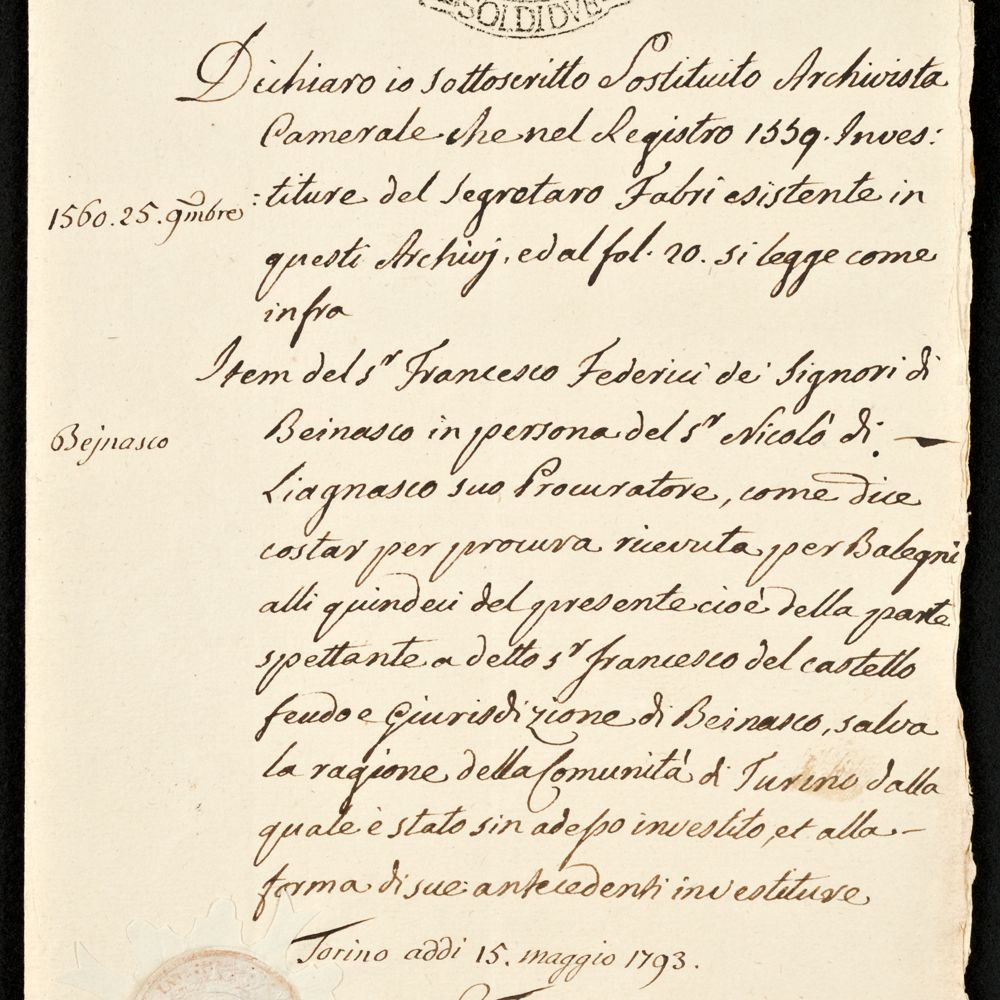 SOLDI DVE
Dichiaro io sottoscritto Sostituito Archivista
Camerale che nel Registro 1559. Inves:
1560. 25. 9mbre
:titure del Segretaro Fabri esistente in
questi Archivj, ed al fol. 20. si legge come
infra
Item del Sr Francesco Federici dei Signori di
Bejnasco
Beinasco in persona del Sr Nicolò di
Liagnasco suo Procuratore, come dice
costar per procura ricevuta per Balegni
alli quindeci del presente cioè della parte
spettante a detto Sr francesco del castello
feudo e Giurisdizione di Beinasco, salva
la ragione della Comunità di Turino dalla
quale è stato sin adesso investito, et alla
forma di sue antecedenti investiture
Torino addi 15. maggio 1793.